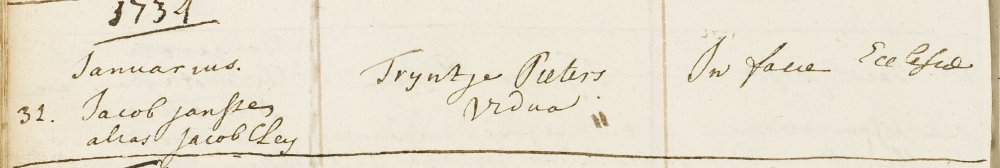 1734
Januarius.
31. Jacob Janssen
alias Jacob Cley
Tryntje Pieters
Vidua
In facie Ecclesiæ